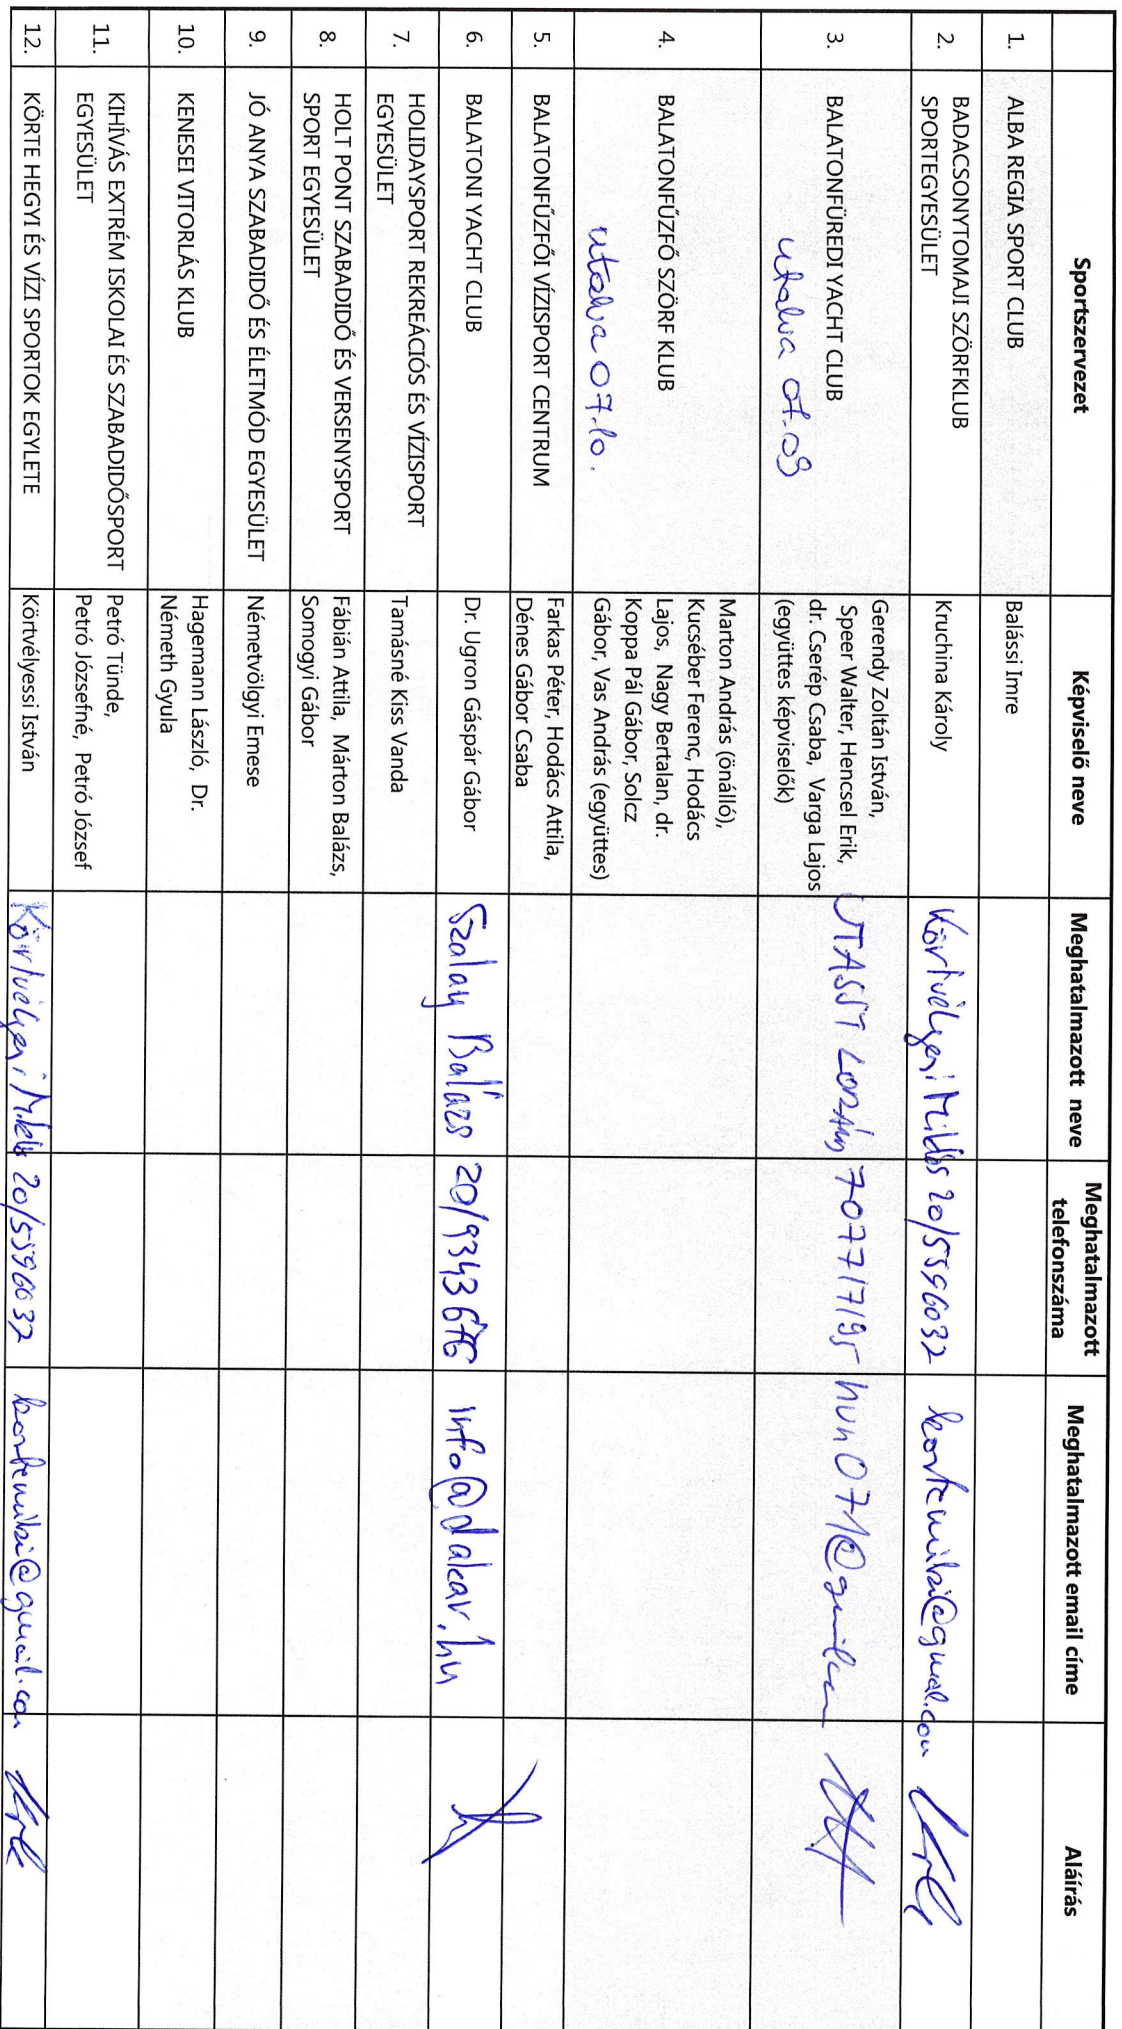 Sportszervezet
Képviselő neve
Meghatalmazott neve
Meghatalmazott
telefonszáma
Meghatalmazott email címe
Aláírás
1.
ALBA REGIA SPORT CLUB
Balássi Imre
2.
BADACSONYTOMAJI SZÖRFKLUB
SPORTEGYESÜLET
Kruchina Károly
Körtvélyesi Miklós
20/5596032
kortemiki@gmail.com
3.
BALATONFÜREDI YACHT CLUB
utalva 07.09
Gerendy Zoltán István,
Speer Walter, Hencsel Erik,
dr. Cserép Csaba, Varga Lajos
(együttes képviselők)
7077171195
hun071@gmail.com
4.
BALATONFŰZFŐ SZÖRF KLUB
utalva 07.10.
Marton András (önálló),
Kucséber Ferenc, Hodács
Lajos, Nagy Bertalan, dr.
Koppa Pál Gábor, Solcz
Gábor, Vas András (együttes)
5.
BALATONFŰZFŐI VÍZISPORT CENTRUM
Farkas Péter, Hodács Attila,
Dénes Gábor Csaba
6.
BALATONI YACHT CLUB
Dr. Ugron Gáspár Gábor
Szalay Balázs
20/9343676
info@dakar.hu
7.
HOLIDAYSPORT REKREÁCIÓS ÉS VÍZISPORT
EGYESÜLET
Tamásné Kiss Vanda
8.
HOLT PONT SZABADIDŐ ÉS VERSENYSPORT
SPORT EGYESÜLET
Fábián Attila, Márton Balázs,
Somogyi Gábor
9.
JÓ ANYA SZABADIDŐ ÉS ÉLETMÓD EGYESÜLET
Németvölgyi Emese
10.
KENESEI VITORLÁS KLUB
Hagemann László, Dr.
Németh Gyula
11.
KIHÍVÁS EXTRÉM ISKOLAI ÉS SZABADIDŐSPORT
EGYESÜLET
Petró Tünde,
Petró Józsefné, Petró József
12.
KÖRTE HEGYI ÉS VÍZI SPORTOK EGYLETE
Körtvélyessi István
Körtvélyesi Miklós
20/5596032
kortemiki@gmail.com